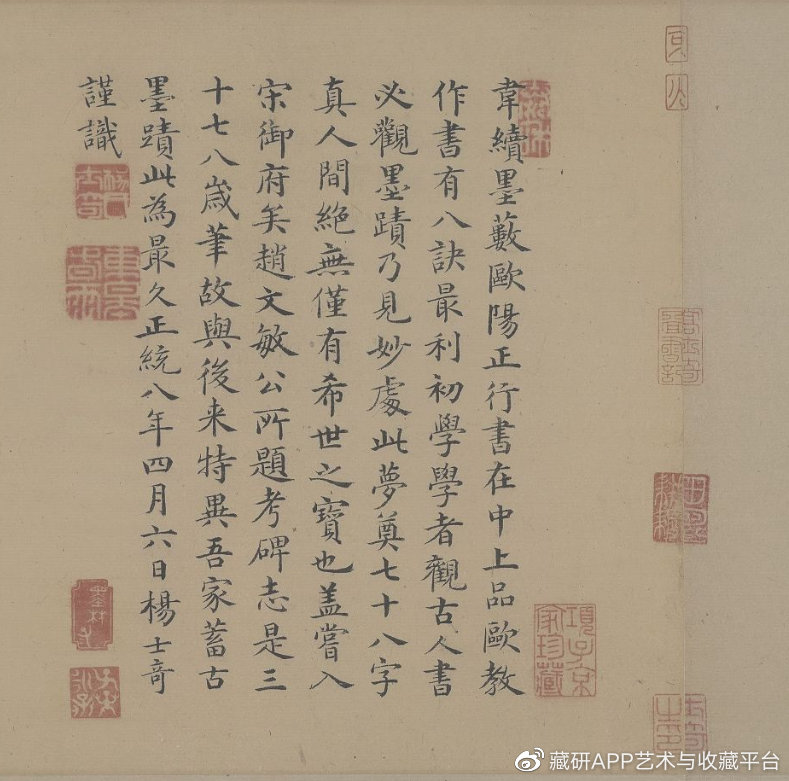 韋續墨藪歐陽正行書在中上品歐教
作書有八訣最利初學學者觀古人書
必觀墨蹟乃見妙處此夢奠七十八字
真人間絕無僅有希世之寶也蓋嘗入
宋御府矣趙文敏公所題考碑志是三
十七八歲筆故與後来特異吾家蓄古
墨蹟此為最久正統八年四月六日楊士奇
謹識
項子京家珍藏
墨林
藏研APP艺术与收藏平台